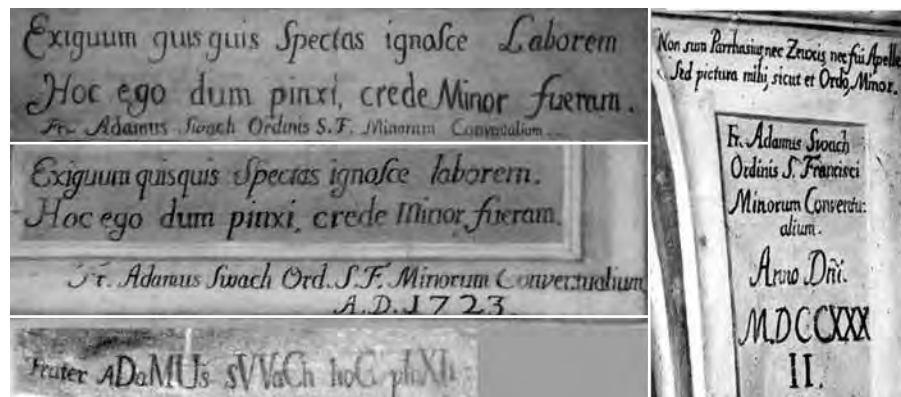 Exiguum quis quis Spectas ignoſce Laborem
Hoc ego dum pinxi, crede Minor fueram.
Fr. Adamus Swach Ordinis S. F. Minorum Conventualium.
Exiguum quisquis Spectas ignoſce laborem.
Hoc ego dum pinxi, crede Minor fueram.
Fr. Adamus Swach Ord. S. F. Minorum Conventualium
A.D. 1723
Frater ADaMUs sVVaCh hoC pInXIt
Non sum Parrhasius nec Zeuxis nec fui Apelle
Sed pictura mihi, sicut et Ordo, Minor.
Fr. Adamus Swach
Ordinis S. Francisci
Minorum Conventu:
alium.
Anno Dñi.
MDCCXXX
II.